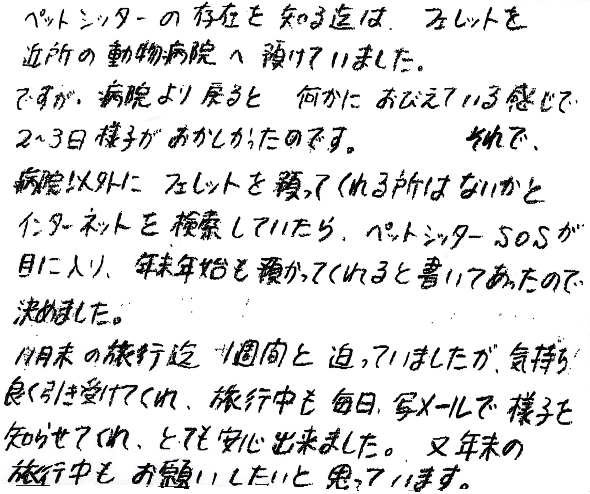 ペットシッターの存在を知る迄は、フェレットを
近所の動物病院へ預けていました。
ですが、病院より戻ると 何かにおびえている感じで
2~3日様子がおかしかったのです。 それで、
病院以外に フェレットを預ってくれる所はないかと
インターネットを検索していたら、ペットシッターSOSが
目に入り、年末年始も預かってくれると書いてあったので
決めました。
11月末の旅行迄 1週間と迫っていましたが、気持ち
良く引き受けてくれ、旅行中も毎日、写メールで様子を
知らせてくれ、とても安心出来ました。又年末の
旅行中もお願いしたいと思っています。